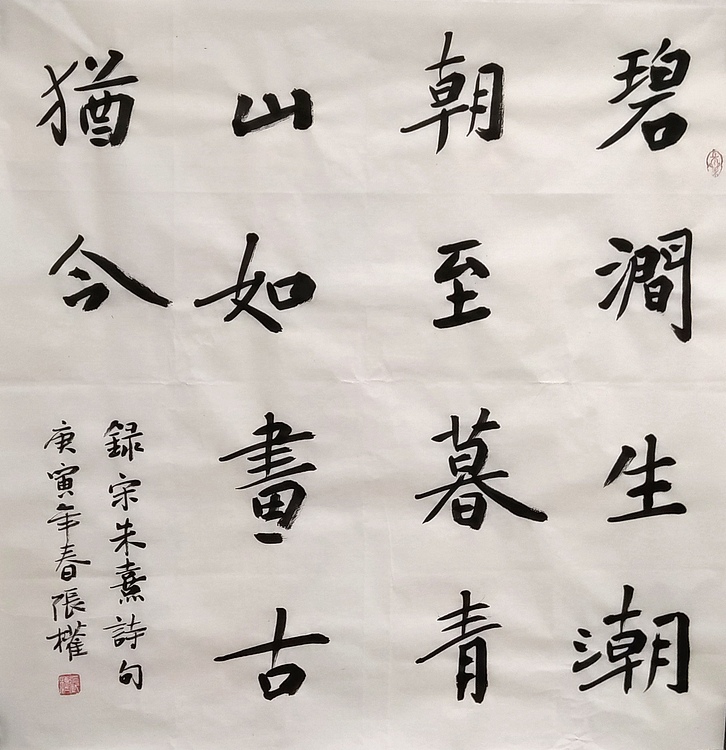 碧澗生潮
朝至暮青
山如畫古
猶今
録宋朱熹詩句
庚寅年春張權